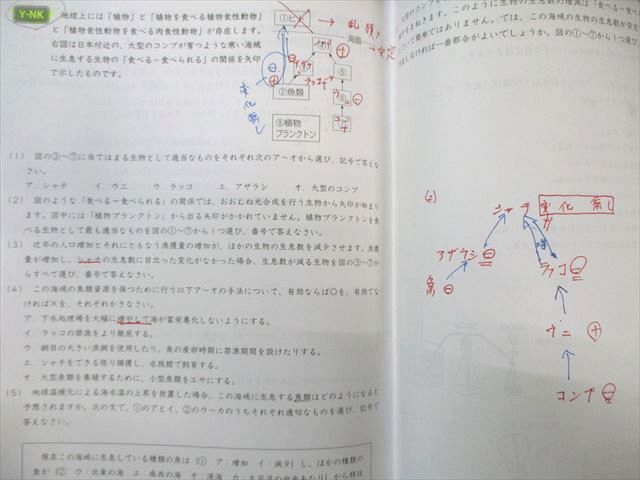 Y-NK
地球上には「植物」と「植物を食べる植物食性動物」
と「植物食性動物を食べる肉食性動物」が存在します。
右図は日本付近の、大型のコンブが育つような寒い海域
に生息する生物の「食べる−食べられる」の関係を矢印
で示したものです。
①ヒト
乱獲
海面
②魚類
⑤
⑧植物
プランクトン
変化無し
(1) 図の③〜⑦に当てはまる生物として適当なものをそれぞれ次のア〜オから選び、記号で答えな
さい。
ア．シャチ イ．ウニ ウ．ラッコ エ．アザラシ オ．大型のコンブ
(2) 図のような「食べる−食べられる」の関係では、おおむね光合成を行う生物から矢印が始まり
ます。図中には「植物プランクトン」から出る矢印がかかれていません。植物プランクトンを食
べる生物として最も適当なものを図の①〜⑦から1つ選び、番号で答えなさい。
(3) 近年の人口増加とそれにともなう漁獲量の増加が、ほかの生物の生息数を減少させます。漁獲
量が増加し、シャチの生息数に目立った変化がなかった場合、生息数が減る生物を図の③〜⑦か
らすべて選び、番号で答えなさい。
(4) この海域の魚類資源を保つために行う以下ア〜オの手法について、有効ならば○を、有効でな
ければ×を、それぞれかきなさい。
ア．下水処理場を大幅に増やして海が富栄養化しないようにする。
イ．ラッコの禁漁をより徹底する。
ウ．網目の大きい漁網を使用したり、魚の産卵時期に禁漁期間を設けたりする。
エ．シャチをできる限り捕獲し、水族館で飼育する。
オ．大型魚類を養殖するために、小型魚類をエサにする。
(5) 地球温暖化による海水温の上昇を放置した場合、この海域に生息する魚類はどのようになると
予想されますか。次の文で、①のアとイ、②のウ〜カのうちそれぞれ適切なものを選び、記号で
答えなさい。
現在この海域に生息している種類の魚は〔① ア：増加 イ：減少〕し、ほかの種類の
魚が〔② ウ：北東の海 エ：南西の海 オ：深海
して簡単ではありません。では、この海域の生物の生息数が変
しなければ一番都合がよいでしょうか。図の①〜⑦から1つ選び
シャチ 変化無し
アザラシ ⊖
魚 ⊖
増
ラッコ ⊖
ウニ ⊕
コンブ ⊖